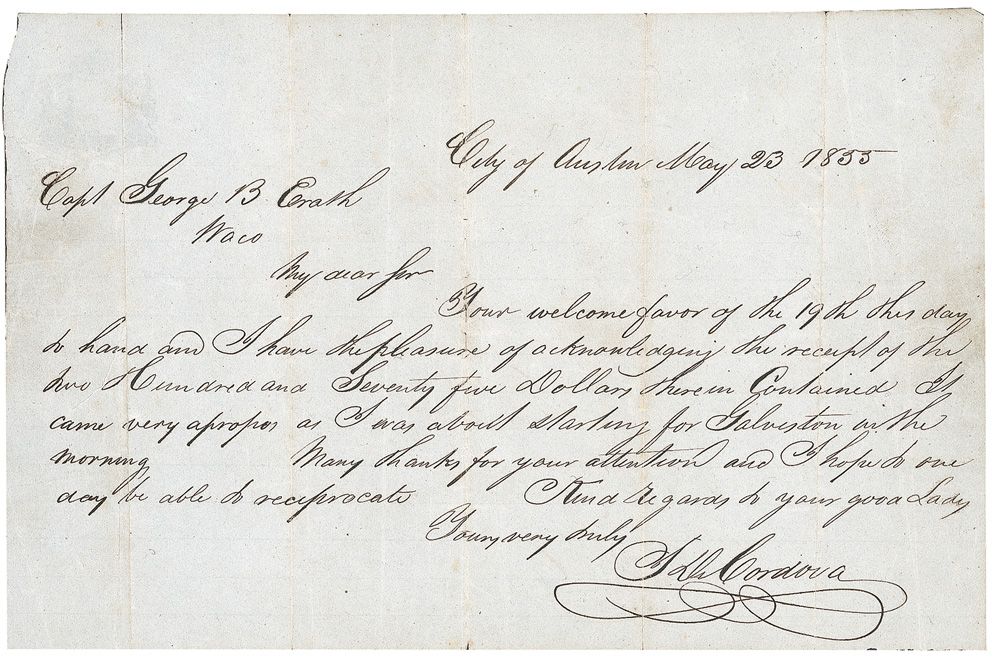 City of Austin May 23 1855
Capt George B Erath
Waco
My dear Sir
Your welcome favor of the 19th this day
to hand and I have the pleasure of acknowledging the receipt of the
two Hundred and Seventy five Dollars therein Contained It
came very apropos as I was about starting for Galveston in the
morning Many thanks for your attention and I hope to one
day be able to reciprocate Kind regards to your good Lady
Yours very truly
J De Cordova